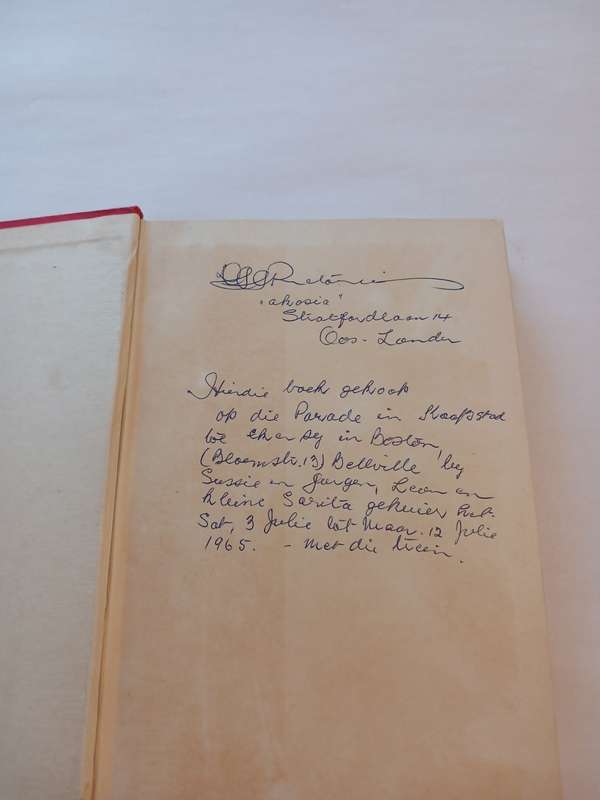 "akosia"
Stratfordlaan 14
Oos-Londen
Hierdie boek gekoop
op die Parade in Kaapstad
toe ek en in Boston,
(Bloemstr. 13) Bellville by
Sussie en Jurgen, Leon en
kleine Sarita gekuier het.
Sat, 3 Julie tot Maan. 12 Julie
1965. - Met die trein.